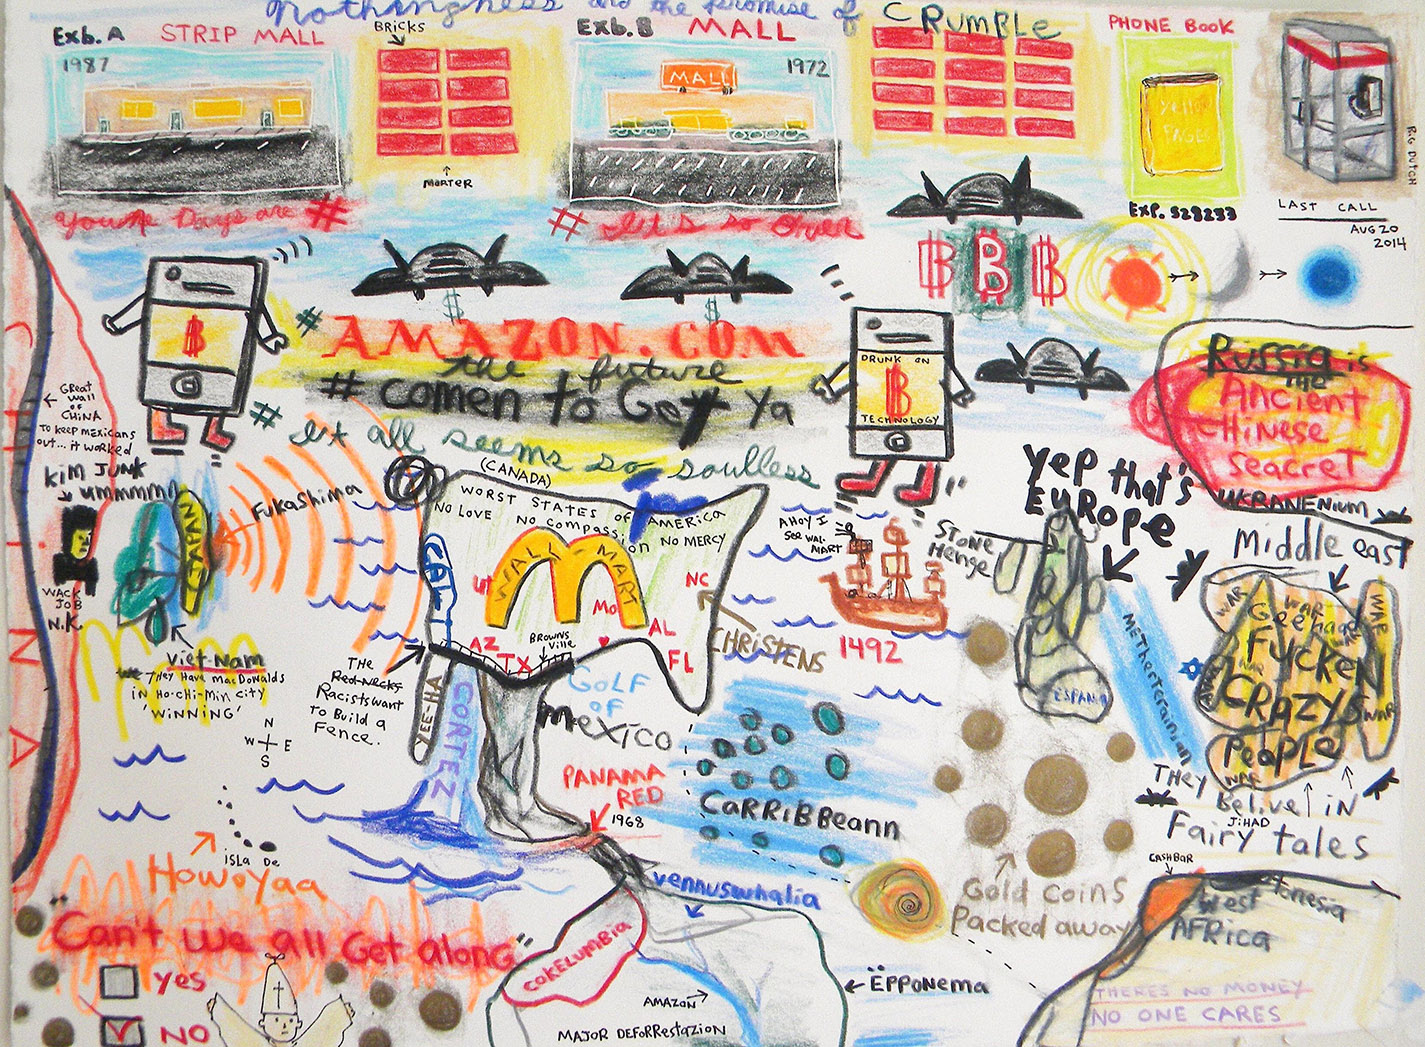 Nothingness and the promise of CRUMBLE
Exb. A
STRIP MALL
1987
BRICKS
MORTER
Exb. B
MALL
MALL
1972
PHONE BOOK
YELLOW
PAGES
EXP. 928233
BIG DUTCH
LAST CALL
AUG 20
2014
Young Days are #
# it's so over
$
$
B B B
B
# AMAZON.COM
the future
# comen to Get Ya
# it all seems so soulless
DRUNK ON
B
TECHNOLOGY
Russia is
THE
Ancient
CHinese
SeacreT
UKRANENIUM
CHINA
GREAT
WALL
OF
CHINA
TO KEEP MEXICANS
OUT... IT WORKED
KIM JUNK
ummmmm
WACK
JOB
N.K.
JAPAN
FUKASHIMA
VIET-NAM
THEY HAVE MACDONALDS
IN HO-CHI-MIN CITY
'WINNING'
N
W E
S
THE
Red-Necks
Racists want
To Build a
Fence.
(CANADA)
WORST STATES of AMERICA
NO LOVE NO compassion NO MERCY
CALI
UT
WALL MART
MO
NC
AZ
TX
BROWNS
VILLE
AL
FL
CHRISTENS
YEE-HA
CORTEZ
GOLF
OF
MEXICO
AHOY I
SEE WAL
MART
1492
STONE
HENGE
YEP that's
EUROPE
ESPANA
METHERTERRAINIAN
Middle east
WAR
WAR
WAR
GEEHAD
FUCKEN
CRAZYS
WAR
WAR
PEOPLE
WAR
THEY
Belive IN
JIHAD
Fairy tales
PANAMA
RED
1968
CARRIBBeann
Gold coins
Packed away
ISLA De
HOWOYAA
"Can't we all Get along"
YES
NO
Vennuswhalia
COKELUMBIA
AMAZON
MAJOR DEFORRESTAZION
ËPPONEMA
CASHBAR
West
AFRICA
THERES NO MONEY
NO ONE CARES